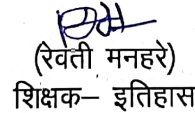 (रेवती मनहरे)
शिक्षक– इतिहास